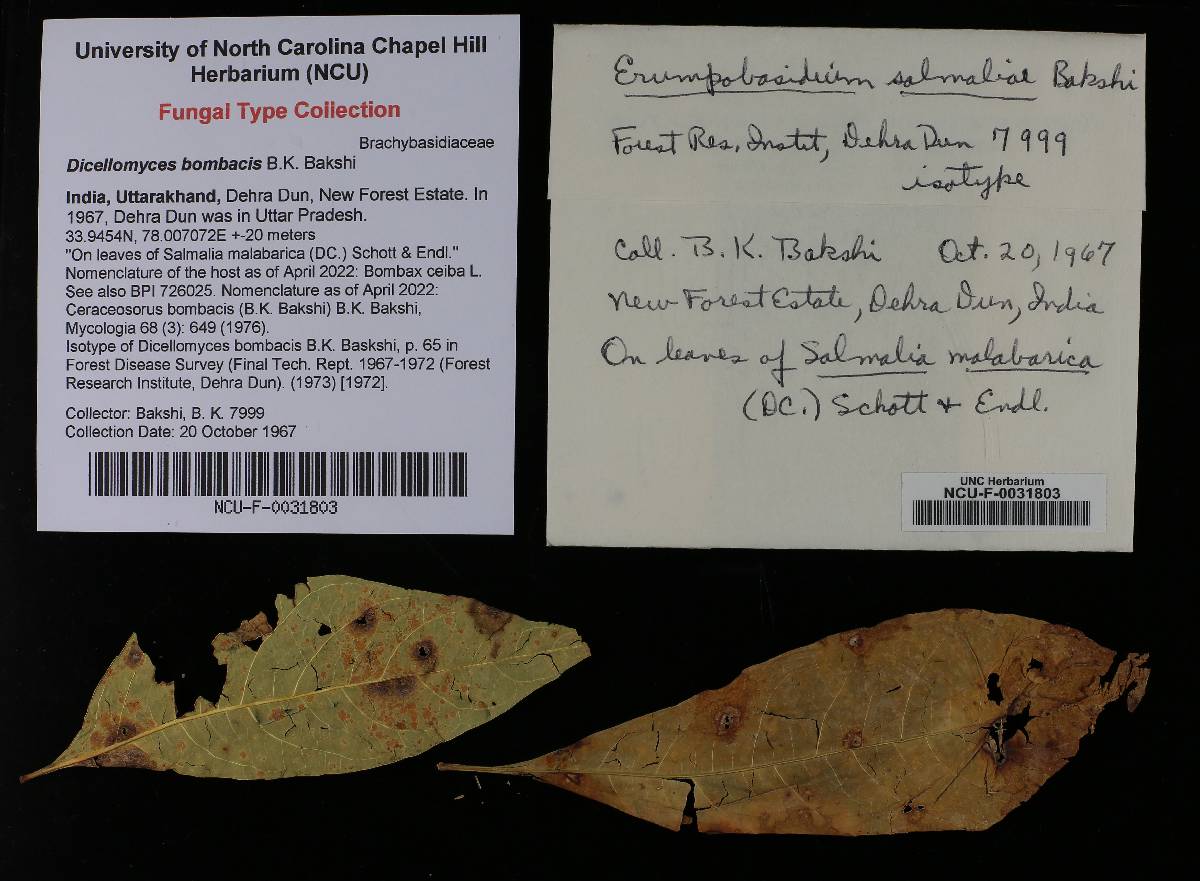 University of North Carolina Chapel Hill
Herbarium (NCU)
Fungal Type Collection
Brachybasidiaceae
Dicellomyces bombacis B.K. Bakshi
India, Uttarakhand, Dehra Dun, New Forest Estate. In
1967, Dehra Dun was in Uttar Pradesh.
33.9454N, 78.007072E +-20 meters
"On leaves of Salmalia malabarica (DC.) Schott & Endl."
Nomenclature of the host as of April 2022: Bombax ceiba L.
See also BPI 726025. Nomenclature as of April 2022:
Ceraceosorus bombacis (B.K. Bakshi) B.K. Bakshi,
Mycologia 68 (3): 649 (1976).
Isotype of Dicellomyces bombacis B.K. Baskshi, p. 65 in
Forest Disease Survey (Final Tech. Rept. 1967-1972 (Forest
Research Institute, Dehra Dun). (1973) [1972].
Collector: Bakshi, B. K. 7999
Collection Date: 20 October 1967
NCU-F-0031803
Erumpobasidium salmaliae Bakshi
Forest Res. Instit, Dehra Dun 7999
isotype
Coll. B. K. Bakshi Oct. 20, 1967
New Forest Estate, Dehra Dun, India
On leaves of Salmalia malabarica
(DC.) Schott & Endl.
UNC Herbarium
NCU-F-0031803